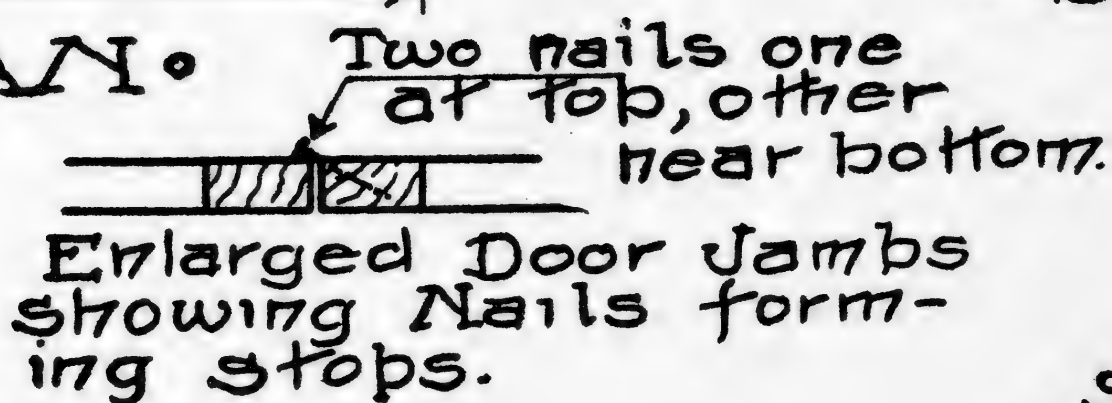 AN.
Two nails one
at top, other
near bottom.
Enlarged Door Jambs
showing Nails form-
ing stops.